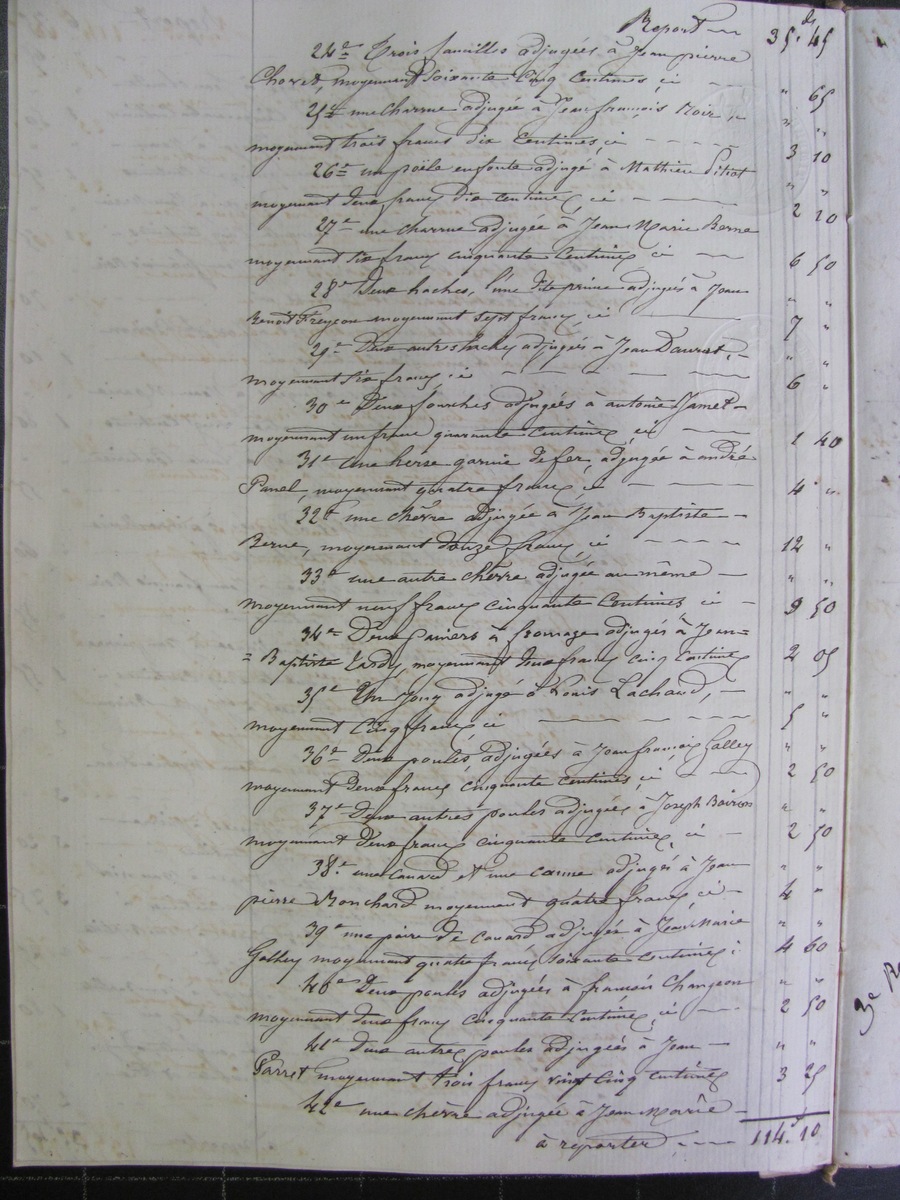 Report 35. 45
24e Trois faucilles adjugées à Jean pierre
Chovet, moyennant soixante cinq centimes, ci " 65
25e une charrue adjugée à Jean françois Noir, " "
moyennant trois francs dix centimes, ci 3 10
26e un poële en fonte adjugé à Mathieu Pitiot " "
moyennant deux francs dix centimes ci 2 10
27e une charrue adjugée à Jean Marie Berne
moyennant six francs cinquante centimes ci 6 50
28e Deux haches, l'une dite adjugées à Jean " "
Benoît Freycon moyennant sept francs, ci 7 "
29e Deux autres haches adjugées à Jean Daurat, " "
moyennant six francs, ci 6 "
30e Deux fourches adjugées à antoine Jamet
moyennant un franc quarante centimes, ci 1 40
31e une herse garnie de fer, adjugée à andré
Panel, moyennant quatre francs, ci 4 "
32e une chèvre adjugée à Jean Baptiste
Berne, moyennant douze francs, ci 12 "
33e une autre chèvre adjugée au même " "
moyennant neuf francs cinquante centimes ci 9 50
34e Deux paniers à fromage adjugés à Jean=
= Baptiste Tardy, moyennant deux francs cinq centimes 2 05
35e Un joug adjugé à Louis Lachaud, " "
moyennant cinq francs ci 5 "
36e Deux poules adjugées à Jean françois Galley " "
moyennant Deux francs cinquante centimes, ci 2 50
37e Deux autres poules adjugées à Joseph Boiron " "
moyennant deux francs cinquante centimes, ci 2 50
38e un canard et une canne adjugés à Jean " "
pierre Bonchard moyennant quatre francs, ci 4 "
39e une paire de canard adjugée à Jean Marie " "
Galley moyennant quatre francs soixante centimes : 4 60
40e Deux poules adjugées à francois Changeon " "
moyennant deux francs cinquante centimes, ci 2 50
41e deux autres poules adjugées à Jean " "
Parret moyennant trois francs vint cinq centimes 3 25
42e une chèvre adjugée à Jean Marie
à reporter 114. 10
3e